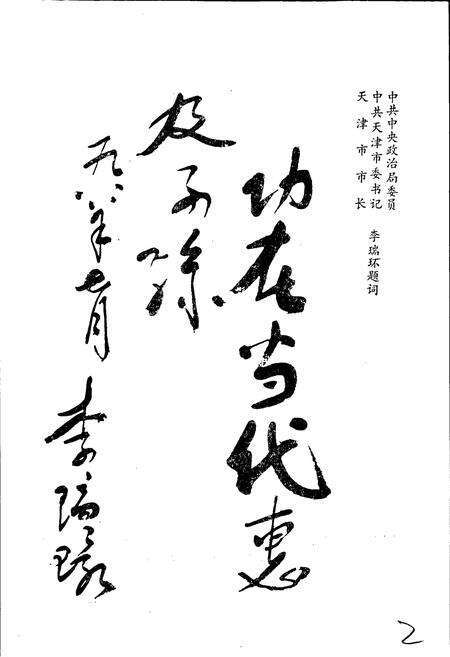 中共中央政治局委员
中共天津市委书记
天津市市长
李瑞环题词
功在当代惠
及子孫
一九八八年七月
李瑞环
2